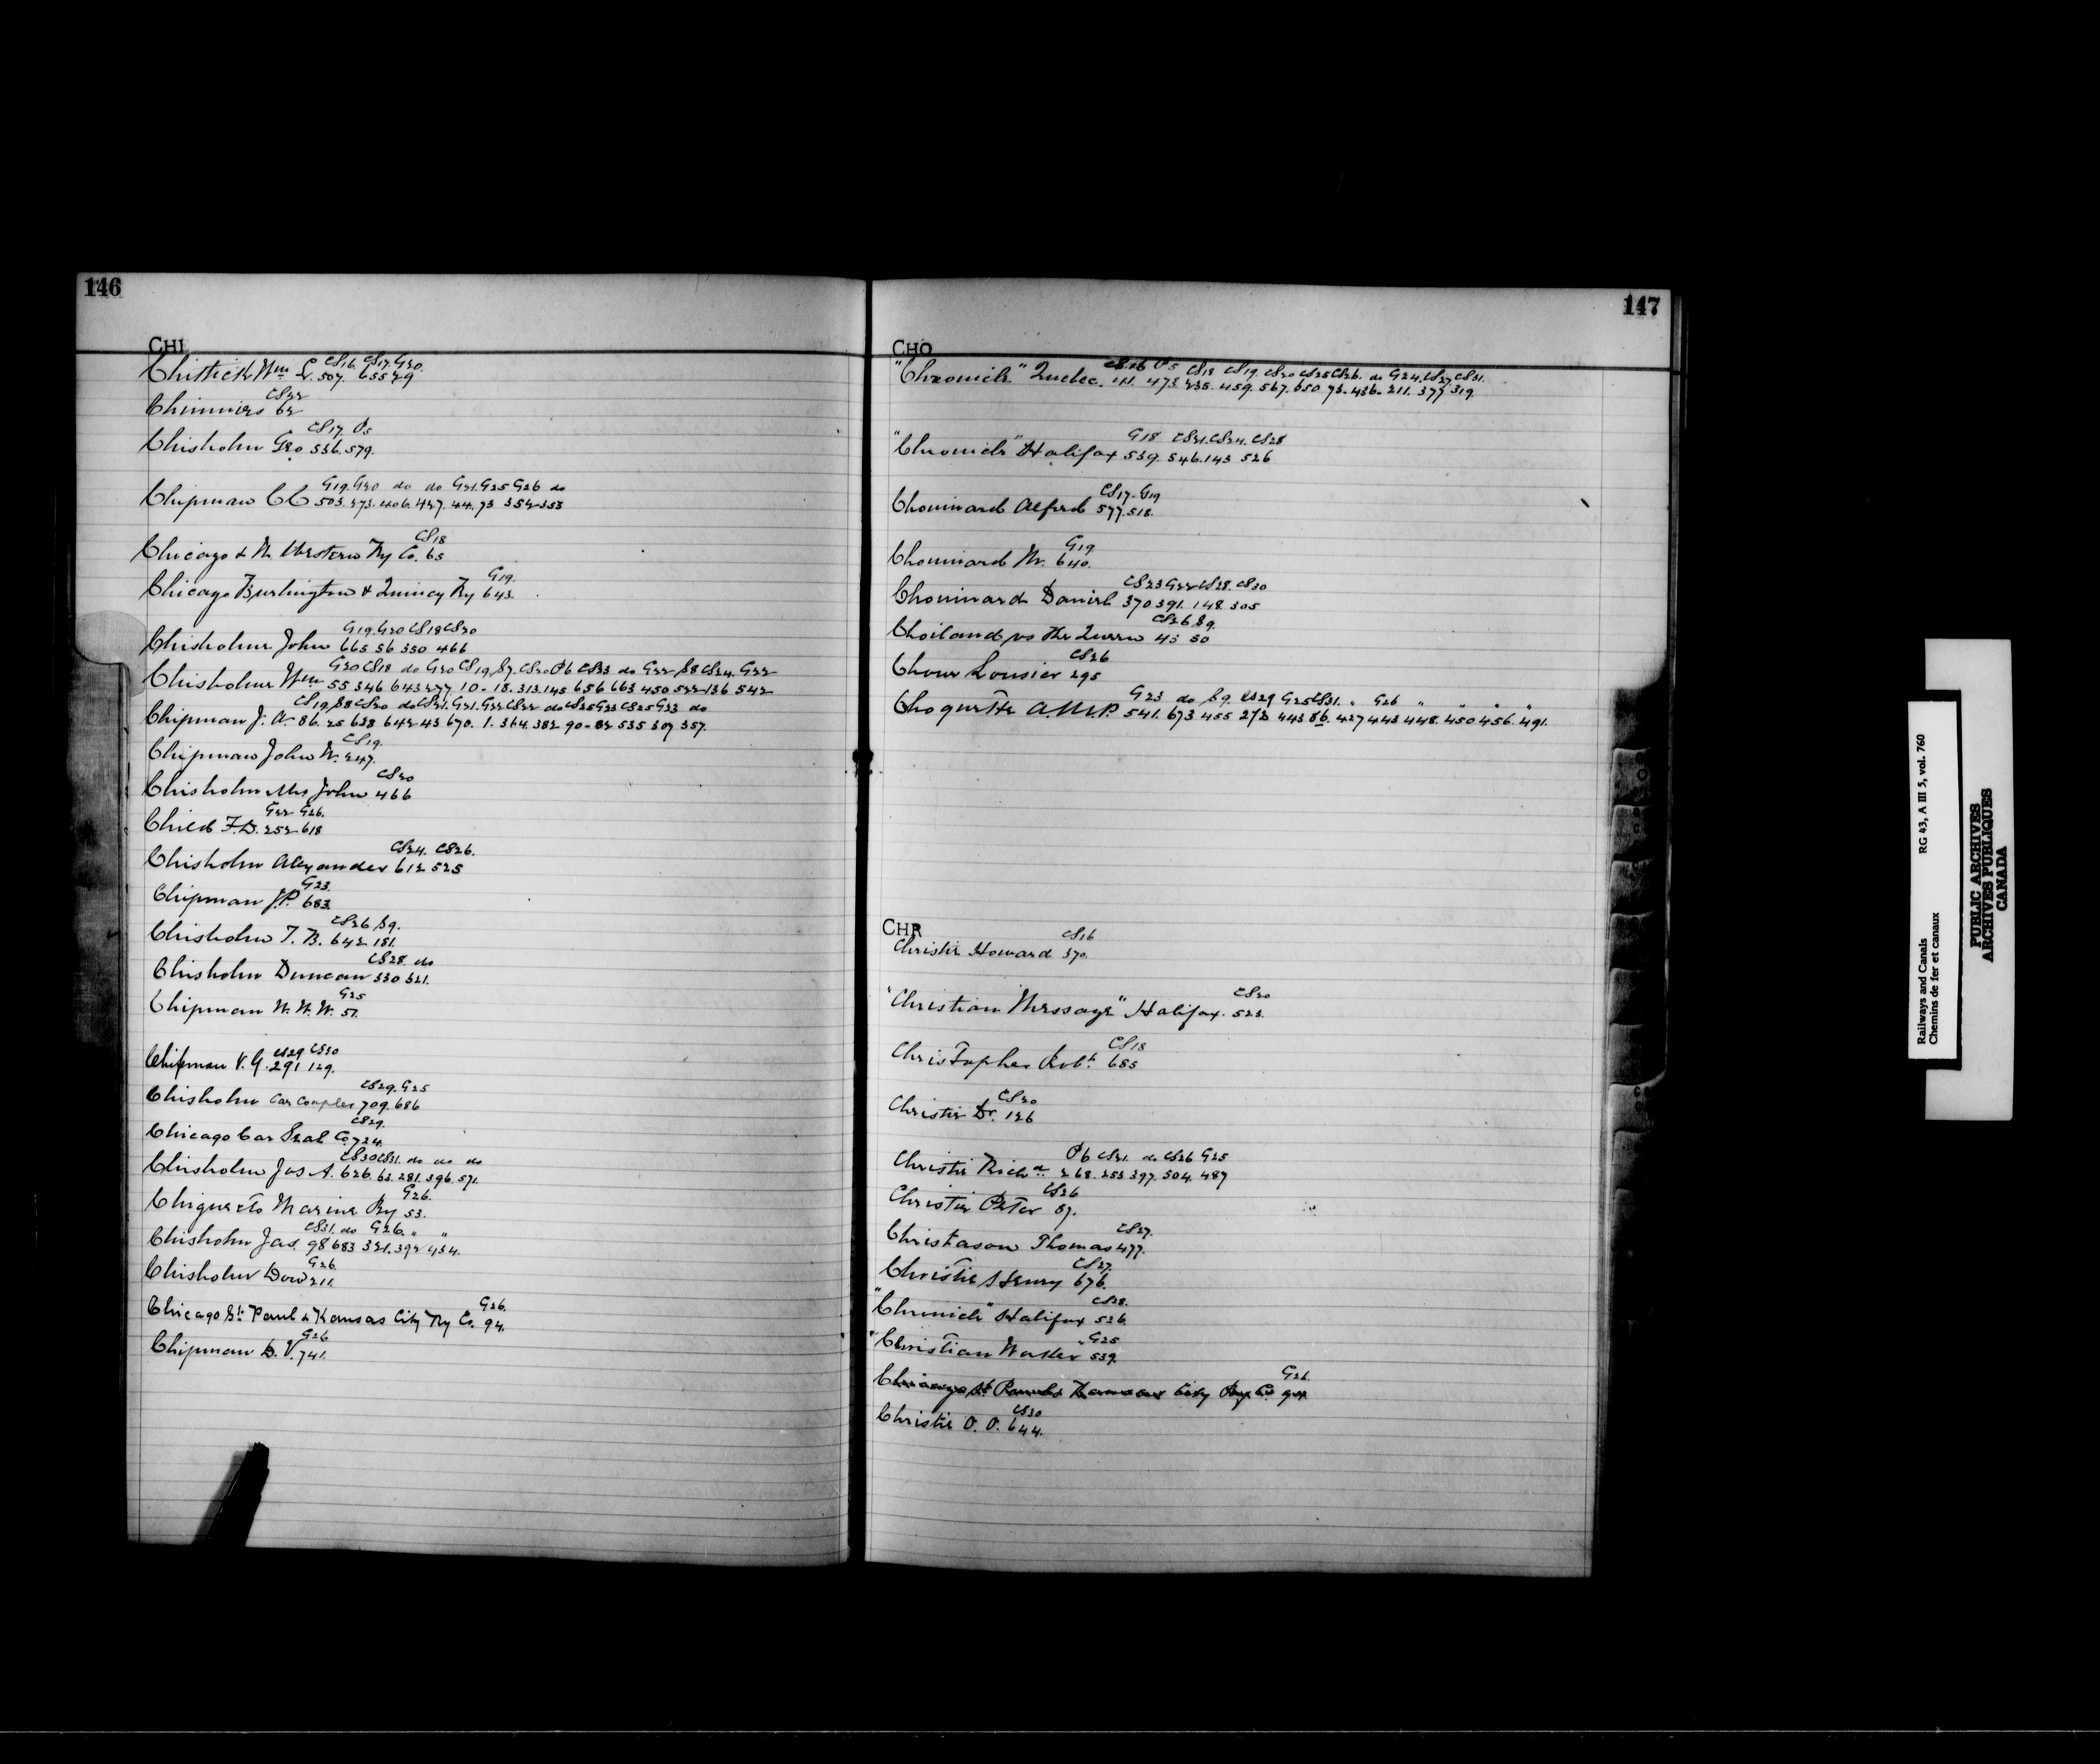 146
CHI
CS16. CS17. G20.
Chittick Wm L. 507. 655 29
CS22
Chimmies 62
CS17. P5
Chisholm Geo 536. 579.
G19. G20 do do G21. G25 G26 do
Chipman CC 503. 273. 406. 427. 44. 73 352 353
CS18
Chicago & N. Western Ry Co. 65
G19.
Chicago Burlington & Quincy Ry 643.
G19. G20 CS18 CS20
Chisholm John 665 56 350 466
G20 CS18 do G20 CS19, S7. CS20 P6 CS23 do G22 S8 CS24. G22
Chisholm Wm 55 346 643 277 10 - 18. 313. 145 656 663 450 522 136 542
CS19, S8 CS20 do CS21. G21. G22 CS22 do CS25 G23 CS25 G23 do
Chipman J. A. 86. 25 628 642 43 670. 1. 364. 382 90 - 82 535 307 357.
CS19.
Chipman John W. 247.
CS20
Chisholm Mrs John 466
G22 G26.
Child F.D. 252 618
CS24. CS26.
Chisholm Alexander 612 525
G23.
Chipman J.P. 683.
CS26 S9.
Chisholm T. B. 642 181.
CS28. do
Chisholm Duncan 330 621.
G25
Chipman W. W. W. 51.
CS29 CS30
Chipman V. G. 291 129.
CS29. G25
Chisholm Car Coupler 709. 686
CS29.
Chicago Car Seal Co. 724.
CS30 CS31. do do do
Chisholm Jas A. 626. 63. 281. 396. 571.
G26.
Chignecto Marine Ry 53.
CS31. do G26. " "
Chisholm Jas. 98 683 321. 392 434.
G26
Chisholm Dow 211.
G26.
Chicago St. Paul & Kansas City Ry Co. 94.
G26
Chipman D. V. 741.
147
CHO
CS16 P5 CS18 CS19. CS20 CS25 CS26. do G24. CS27 CS31.
"Chronicle" Quebec. 141. 473 235. 459. 567. 650 73. 436. 211. 377 319.
G18 CS21. CS24. CS28
"Chronicle" Halifax 539. 546. 143 526
CS17. G19
Chouinard Alfred 577. 518.
G19.
Chouinard W. 640.
CS23 G22 CS28. CS30
Chouinard Daniel 370 391. 148. 305
CS26 S9.
Choiland vs the Queen 45 50
CS26
Chour Lousier 295
G23 do S9. CS29 G25 CS31. " G26 " " " "
Choquette A. M.P. 541. 673 455 272 443 86. 427 443 448. 450 456. 491.
CHR
CS16
Christie Howard 370.
CS20
"Christian Message" Halifax. 523.
CS18
Christopher Robt. 685
CS20
Christie Dr. 126
P6 CS21. do CS26 G25
Christie Richd. 268. 253 397. 504. 487
CS26
Christie Peter 87.
CS27.
Christason Thomas 477.
CS27.
Christie Henry 676.
CS28.
"Chronicle" Halifax 526.
G25
"Christian Worker" 539.
G26.
Chicago St. Paul & Kansas City Ry Co. 94.
CS30
Christie O. O. 644.
Railways and Canals RG 43, A III 5, vol. 760
Chemins de fer et canaux
PUBLIC ARCHIVES
ARCHIVES PUBLIQUES
CANADA